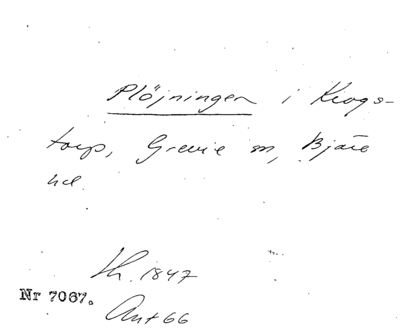 Plöjningen i Krogs-
torp, Grevie sn, Bjäre
hd.
th. 1847
Nr 7067.
Ant 66